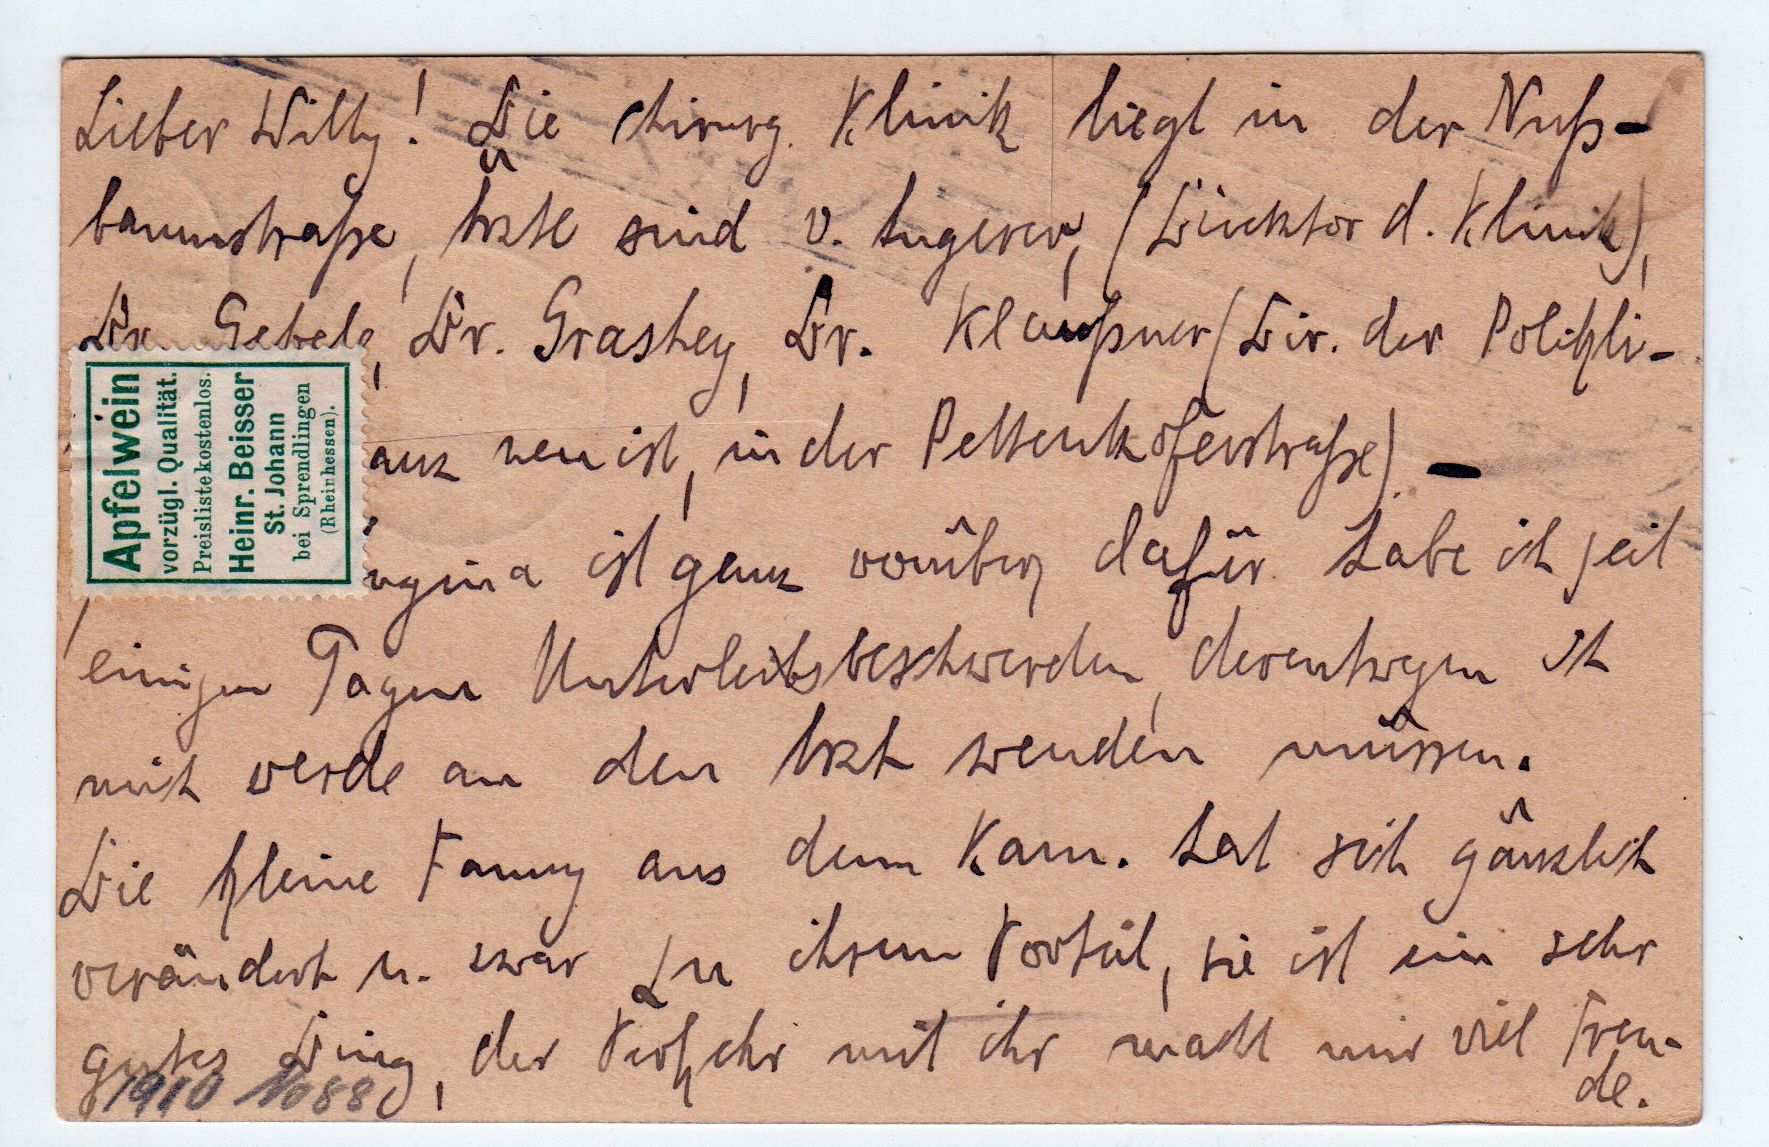 Lieber Willy! Die chirurg. Klinik liegt in der Nuß-
baumstraße, Ärzte sind v. Angerer, (Direktor d. Klinik),
Dr. Gebele, Dr. Grashey, Dr. Klaußner (Dir. der Polikli-
anz neu ist, in der Pettenkoferstraße). —
ngina ist ganz vorüber, dafür habe ich seit
einigen Tagen Unterleibsbeschwerden, derentwegen ich
mich werde an den Arzt wenden müssen.
Die kleine Fanny aus dem Kam. hat sich gänzlich
verändert u. zwar zu ihrem Vorteil, sie ist ein sehr
gutes Ding, der Verkehr mit ihr macht mir viel Freu-
de.
1910 No 88
Apfelwein
vorzügl. Qualität.
Preisliste kostenlos.
Heinr. Beisser
St. Johann
bei Sprendlingen
(Rheinhessen).